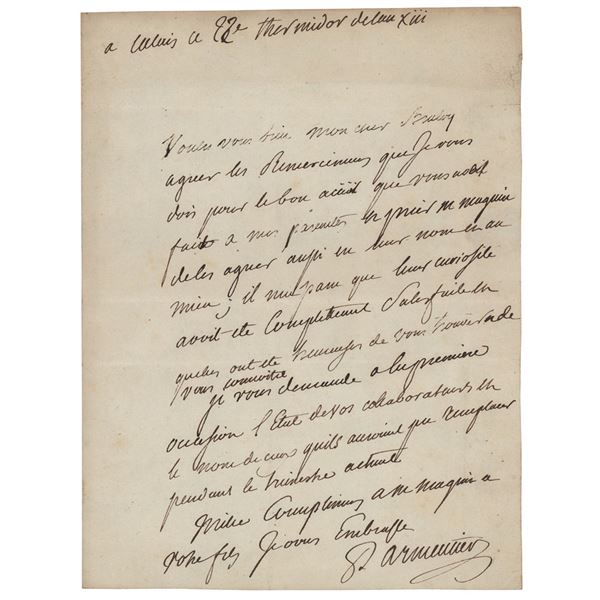 a Calais ce 22e thermidor de lan xiii
Voules vous bien Mon cher
agreer les Remercimens que Je vous
dois pour le bon acüil que vous avéz
fait a mes parentes et prier m maquin
de les agreer aussi en leur nom et au
mien; il ma paru que leur curiosité
avoit ete Complettement Satisfaite et
quelles ont ete de vous trouver et de
vous connoitre
je vous demande a la premiere
occasion l'Etat de vos collaborateurs et
le nom de ceux quils auroient pu remplacer
pendant le trimestre actuel
Mille Complimens a m maquin a
votre fils Je vous Embrasse
Parmentier